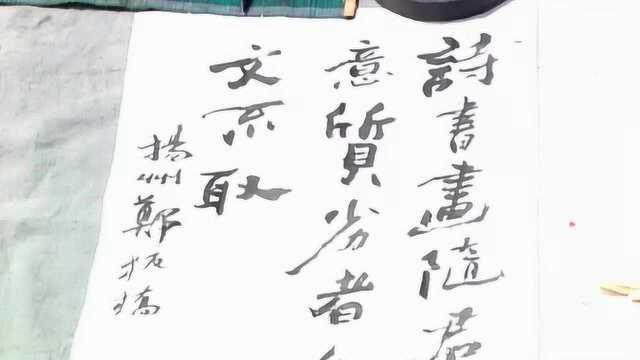 詩書畫隨君
意質劣者
文不取
揚州鄭板橋